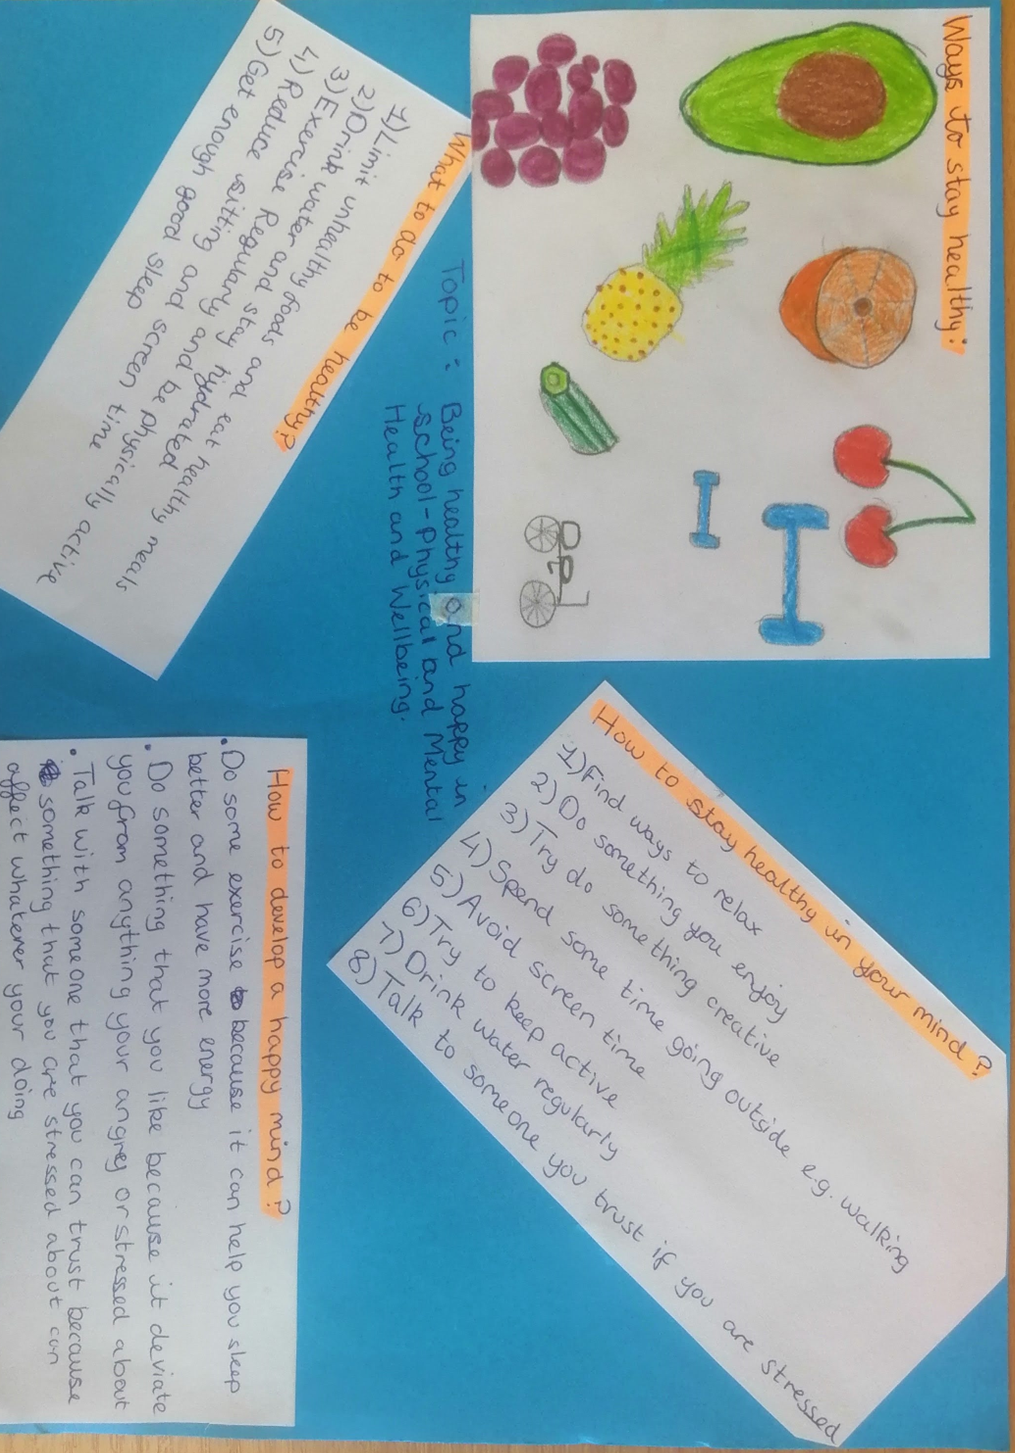 Ways to stay healthy:
Topic: Being healthy and happy in
school-Physical and Mental
Health and Wellbeing.
What to do to be healthy?
1) Limit unhealthy foods and eat healthy meals
2) Drink water and stay hydrated
3) Exercise Regulary and be physically active
4) Reduce sitting and screen time
5) Get enough good sleep
How to stay healthy in your mind?
1) Find ways to relax
2) Do something you enjoy
3) Try do something creative
4) Spend some time going outside e.g. walking
5) Avoid screen time
6) Try to keep active
7) Drink water regularly
8) Talk to someone you trust if you are stressed
How to develop a happy mind?
• Do some exercise because it can help you sleep
better and have more energy
• Do something that you like because it deviate
you from anything your angrey or stressed about
• Talk with someone that you can trust because
something that you are stressed about can
affect whatever your doing